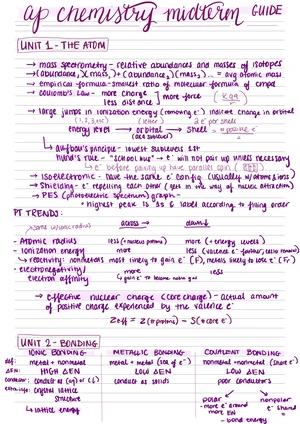 ap chemistry midterm GUIDE
UNIT 1 - THE ATOM
→ mass spectrometry - relative abundances and masses of isotopes
→ (abundance₁)(mass₁) + (abundance₂)(mass₂) ... = avg atomic mass
→ empirical formula - smallest ratio of molecular formula of cmpd
→ coulomb's law - more charge
less distance ] more force
→ large jumps in ionization energy (removing e⁻) indicate change in orbital
energy level → orbital → shell
→ Aufbau's principle - lowest sublevels 1st
→ hund's rule - "school bus" → e⁻ will not pair up unless necessary
→ Isoelectronic - have the same e⁻ config (usually w/ atoms & ions)
→ Shielding - e⁻ repelling each other (gets in the way of nucleic attraction)
→ PES (photoelectric spectrum) graph -
• highest peak is 1s & label according to filling order
PT TRENDS:
across → down ↓
- Atomic radius less (+ nucleus protons) more (+ energy levels)
- ionization energy more less
↳ reactivity: nonmetals most likely to gain e⁻ (F), metals likely to lose e⁻ (Fr)
- electronegativity/ more less
electron affinity
→ effective nuclear charge (core charge) - actual amount
of positive charge experienced by the valence e⁻
Zeff = Z (# protons) - S (# core e⁻)
UNIT 2 - BONDING
IONIC BONDING METALLIC BONDING COVALENT BONDING
def: metal + nonmetal metal + metal (sea of e⁻) nonmetal + nonmetal (share e⁻)
ΔEN: HIGH ΔEN LOW ΔEN LOW ΔEN
conductor: conduct as (aq) or (l) conduct as solids poor conductors
crystal lattice
structure
↳ lattice energy
polar nonpolar
- more e⁻ around e⁻ shared
more EN
- bond energy